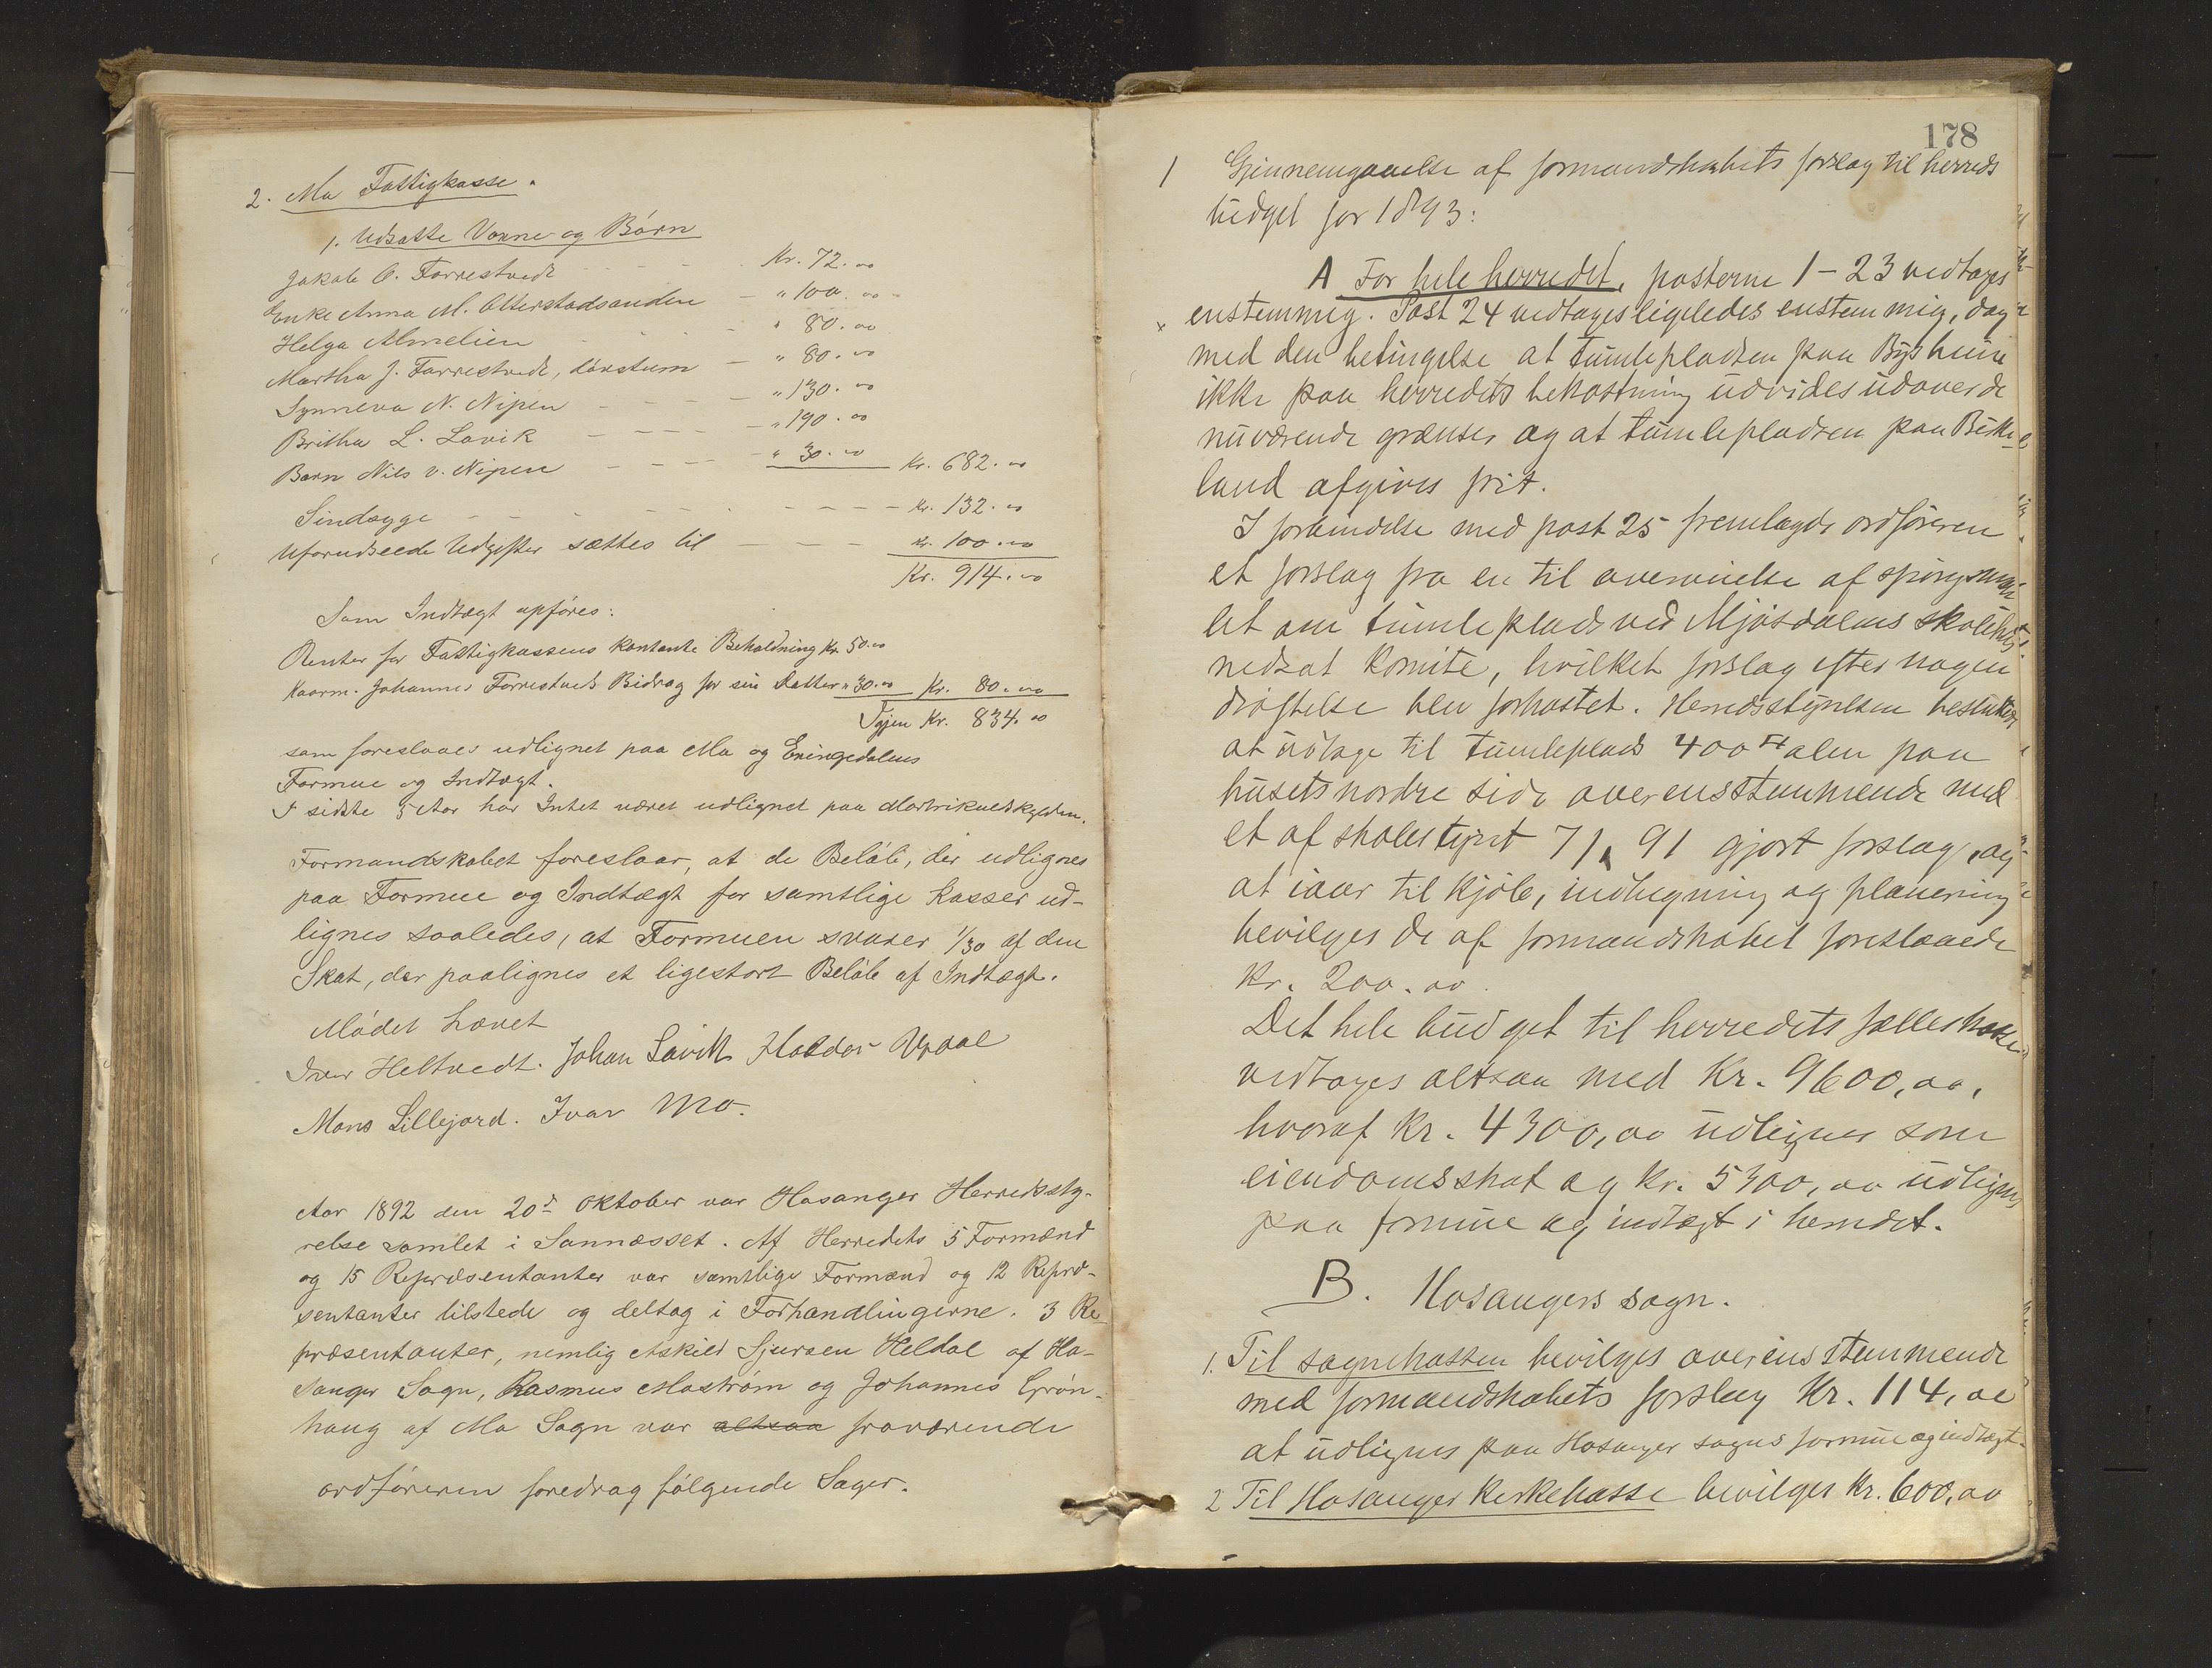 2. Mo Fattigkasse.
1. Udsatte Voxne og Börn
Jakob O. Farrestvedt - - - - Kr. 72.00
Enke Anna M. Otterstadsanden - " 100.00
Helga Almelien - - - " 80.00
Martha J. Farrestvedt, dövstum - " 80.00
Synneva N. Nipen - - - - " 130.00
Britha L. Lavik - - - - " 190.00
Barn Nils v. Nipen - - - - " 30.00 Kr. 682.00
Sindsyge - - - - - - - - - Kr. 132.00
Uforudseede Udgifter sættes til - - - Kr. 100.00
Kr. 914.00
Som Indtægt opföres:
Renter for Fattigkassens kontante Beholdning Kr. 50.00
Kaarm. Johannes Farrestveds Bidrag for sin Datter " 30.00 Kr. 80.00
Igjen Kr. 834.00
som foreslaaes udlignet paa Mo og Eksingedalens
Formue og Indtægt.
I sidste 5 Aar har Intet været udlignet paa Matrikulskylden.
Formandskabet foreslaar, at de Belöb, der udlignes
paa Formue og Indtægt for samtlige Kasser ud-
lignes saaledes, at Formuen svarer 1/30 af den
Skat, der paalignes et ligestort Belöb af Indtægt.
Mödet hævet
Iver Heltvedt. Johan Lavik Haldor Updal
Mons Lillejord. Ivar Mo.
Aar 1892 den 20de Oktober var Hosanger Herredssty-
relse samlet i Sannæsset. Af Herredets 5 Formænd
og 15 Repræsentanter var samtlige Formænd og 12 Repræ-
sentanter tilstede og deltog i Forhandlingerne. 3 Re-
præsentanter, nemlig Askild Sjursen Heldal af Ho-
sanger Sogn, Rasmus Mostrøm og Johannes Grön-
haug af Mo Sogn var altsaa fraværende
Ordföreren foredrog fölgende Sager.
178
1 Gjennemgaaelse af formandskabets forslag til herreds
budget for 1893:
A For hele herredet, posterne 1-23 vedtages
enstemmig. Post 24 vedtages ligeledes enstemmig, dog
med den betingelse at tumlepladsen paa Bysheim
ikke paa herredets bekostning udvides udover de
nuværende grænser og at tumlepladsen paa Birke-
land afgives frit.
I forbindelse med post 25 fremlagde ordföreren
et forslag fra en til overveielse af spörgsmaa-
let om tumleplads ved Mjösdalens skolehus
nedsat komite, hvilket forslag efter nogen
dröftelse blev forkastet. Herredsstyrelsen beslutter
at udtage til tumleplads 400 □ alen paa
husets nordre side overensstemmende med
et af skolestyret 7/ 91 gjort forslag, og
at iaar til kjöb, indhegning og planering
bevilges de af formandskabet foreslaaede
Kr. 200.00.
Det hele budget til herredets fælleskasse
vedtages altsaa med Kr. 9600,00,
hvoraf Kr. 4300,00 udlignes som
eiendomsskat og Kr. 5300,00 udlignes
paa formue og indtægt i herredet.
B. Hosangers sogn.
1. Til sognekassen bevilges overensstemmende
med formandskabets forslag Kr. 114,00
at udlignes paa Hosanger sogns formue og indtægt.
2 Til Hosanger Kirkekasse bevilges Kr. 600,00